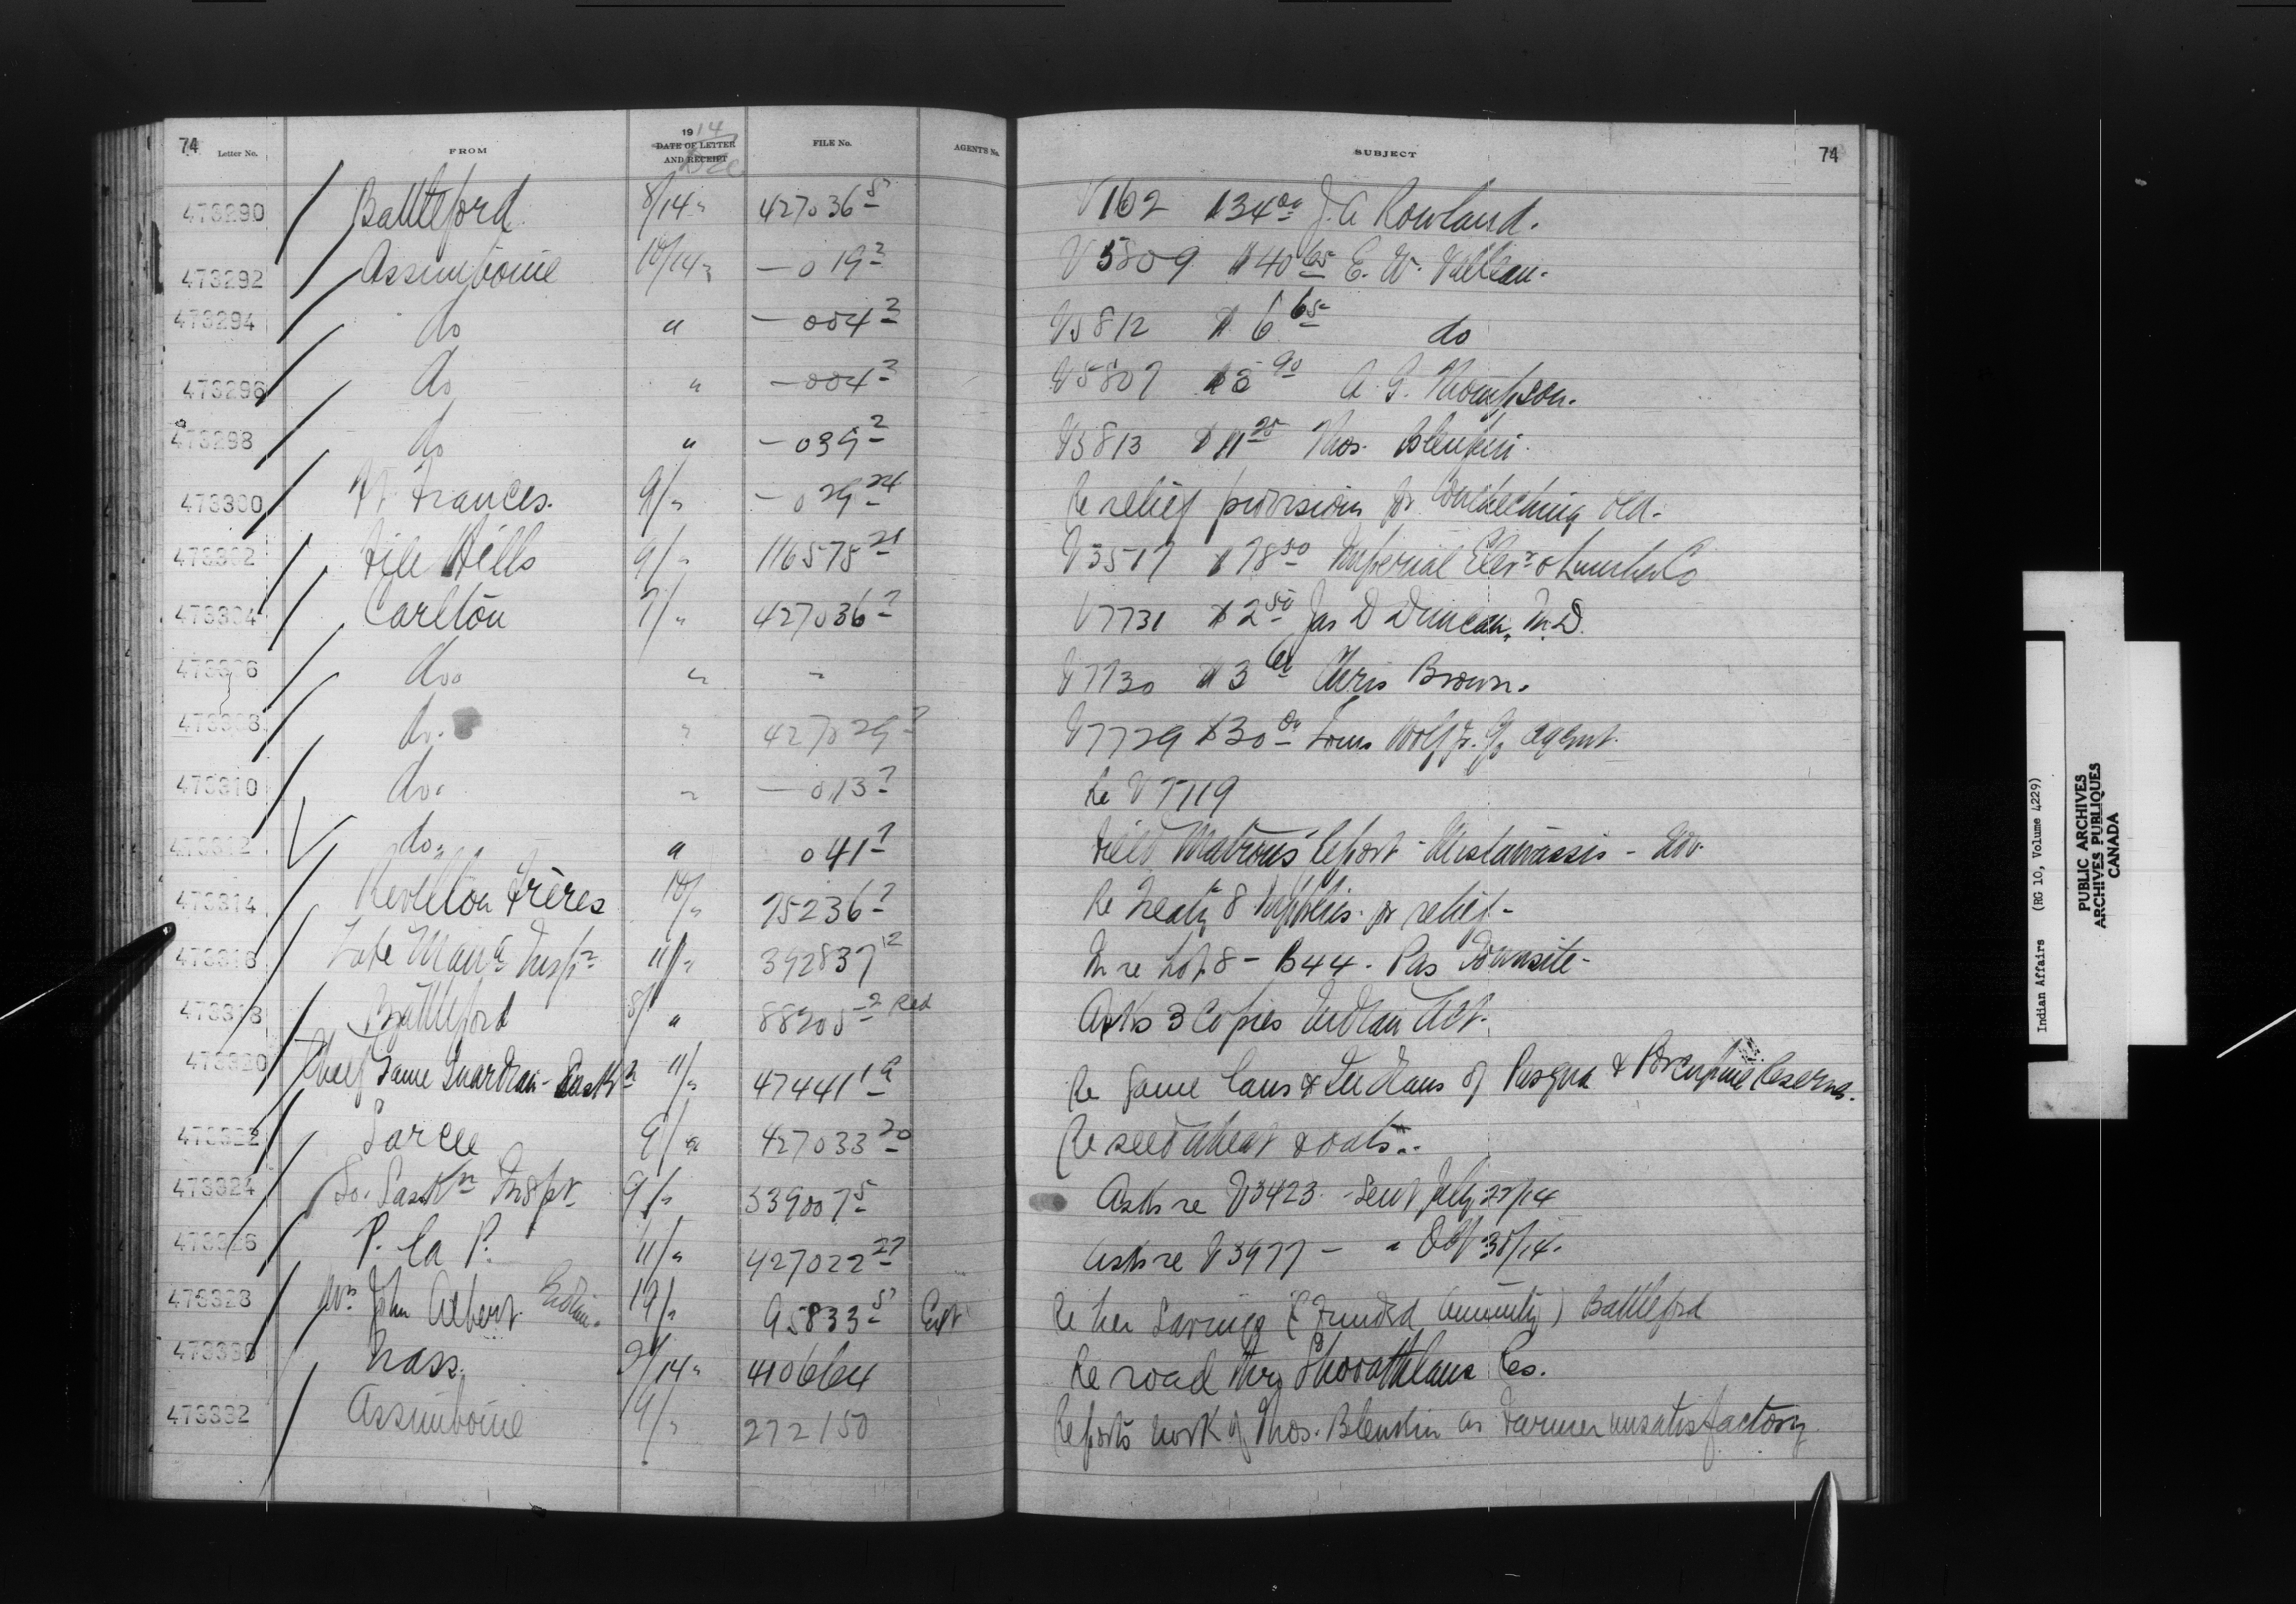 74 Letter No. FROM 1914 DATE OF LETTER AND RECEIPT Dec FILE No. AGENT'S No. SUBJECT 74
473290 Battleford 8/14 " 427036-5 V162 $34 00 J. A Rowland.
473292 Assiniboine 10/14 " — 019-2 V5809 $40 65 E. W.
473294 do " — 004-3 V5812 $6 65 do
473296 do " — 004-3 V5807 90 A. G. Thompson.
473298 do " — 039-2 V5813 $11 25 Thos. Blenkin.
473300 Ft Frances. 9/ " — 029-24 Re relief provisions for
473302 File Hills 9/ " 116575-21 V3517 $78 50 Imperial Elevr & Lumber Co
473304 Carlton 7/ " 427036-7 V7731 $2 50 Jas D Duncan, M.D.
473306 do. " - V7730 $3 Chris Brown.
473308 do. " 427029-7 V7729 $30 00 Louis Wolfe Jr. agent.
473310 do. " — 013-7 Re V7719
473312 do. " 041-7 Field Matrons Report - Mistawassis - Nov.
473314 Revillon Frères 10/ " 75236-7 Re Treaty 8 supplies for relief -
473316 Lake Mana Inspr 11/ " 392837-12 In re Lot 8 - B44. Pas Townsite -
473318 Battleford 8/ " 88205-2 Red Asks 3 Copies Indian Act.
473320 Chief Game Guardian - Saskn 11/ " 47441-1 Re Game laws & Indians of Pasqua & Porcupine Reserves.
473322 Sarcee 9/ " 427033-20 Re seed wheat & oats.
473324 So. Saskn Inspt. 9/ " 339007-5 Asks re V3423 - sent July 22/14
473326 P. la P. 11/ " 427022-27 Asks re V3977 - " Oct 30/14.
473328 Mrs John Albert 19/ " 95833-5 Re her Savings (Funded Annuity) Battleford
473330 Nass. 2/14 " 410664 Re road thro Res.
473332 Assiniboine 19/ " 272150 Reports work of Thos. Blenkin as Farmer unsatisfactory
Indian Affairs (RG 10, Volume 4229)
PUBLIC ARCHIVES
ARCHIVES PUBLIQUES
CANADA